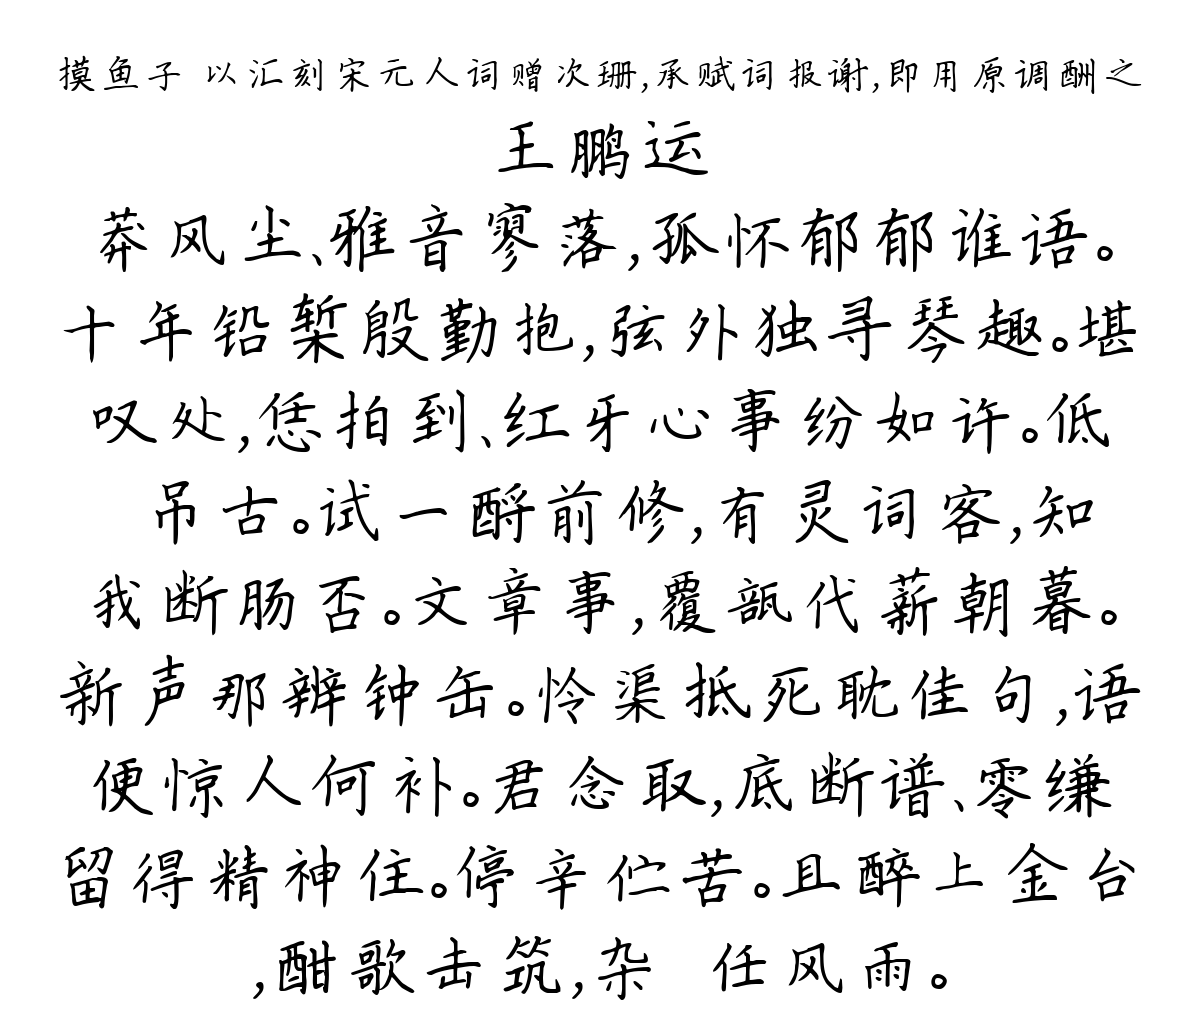 摸鱼子 以汇刻宋元人词赠次珊,承赋词报谢,即用原调酬之
王鹏运
莽风尘、雅音寥落,孤怀郁郁谁语。
十年铅椠殷勤抱,弦外独寻琴趣。堪
叹处,恁拍到、红牙心事纷如许。低
吊古。试一酹前修,有灵词客,知
我断肠否。文章事,覆瓿代薪朝暮。
新声那辨钟缶。怜渠抵死耽佳句,语
便惊人何补。君念取,底断谱、零缣
留得精神住。停辛伫苦。且醉上金台
,酣歌击筑,杂 任风雨。